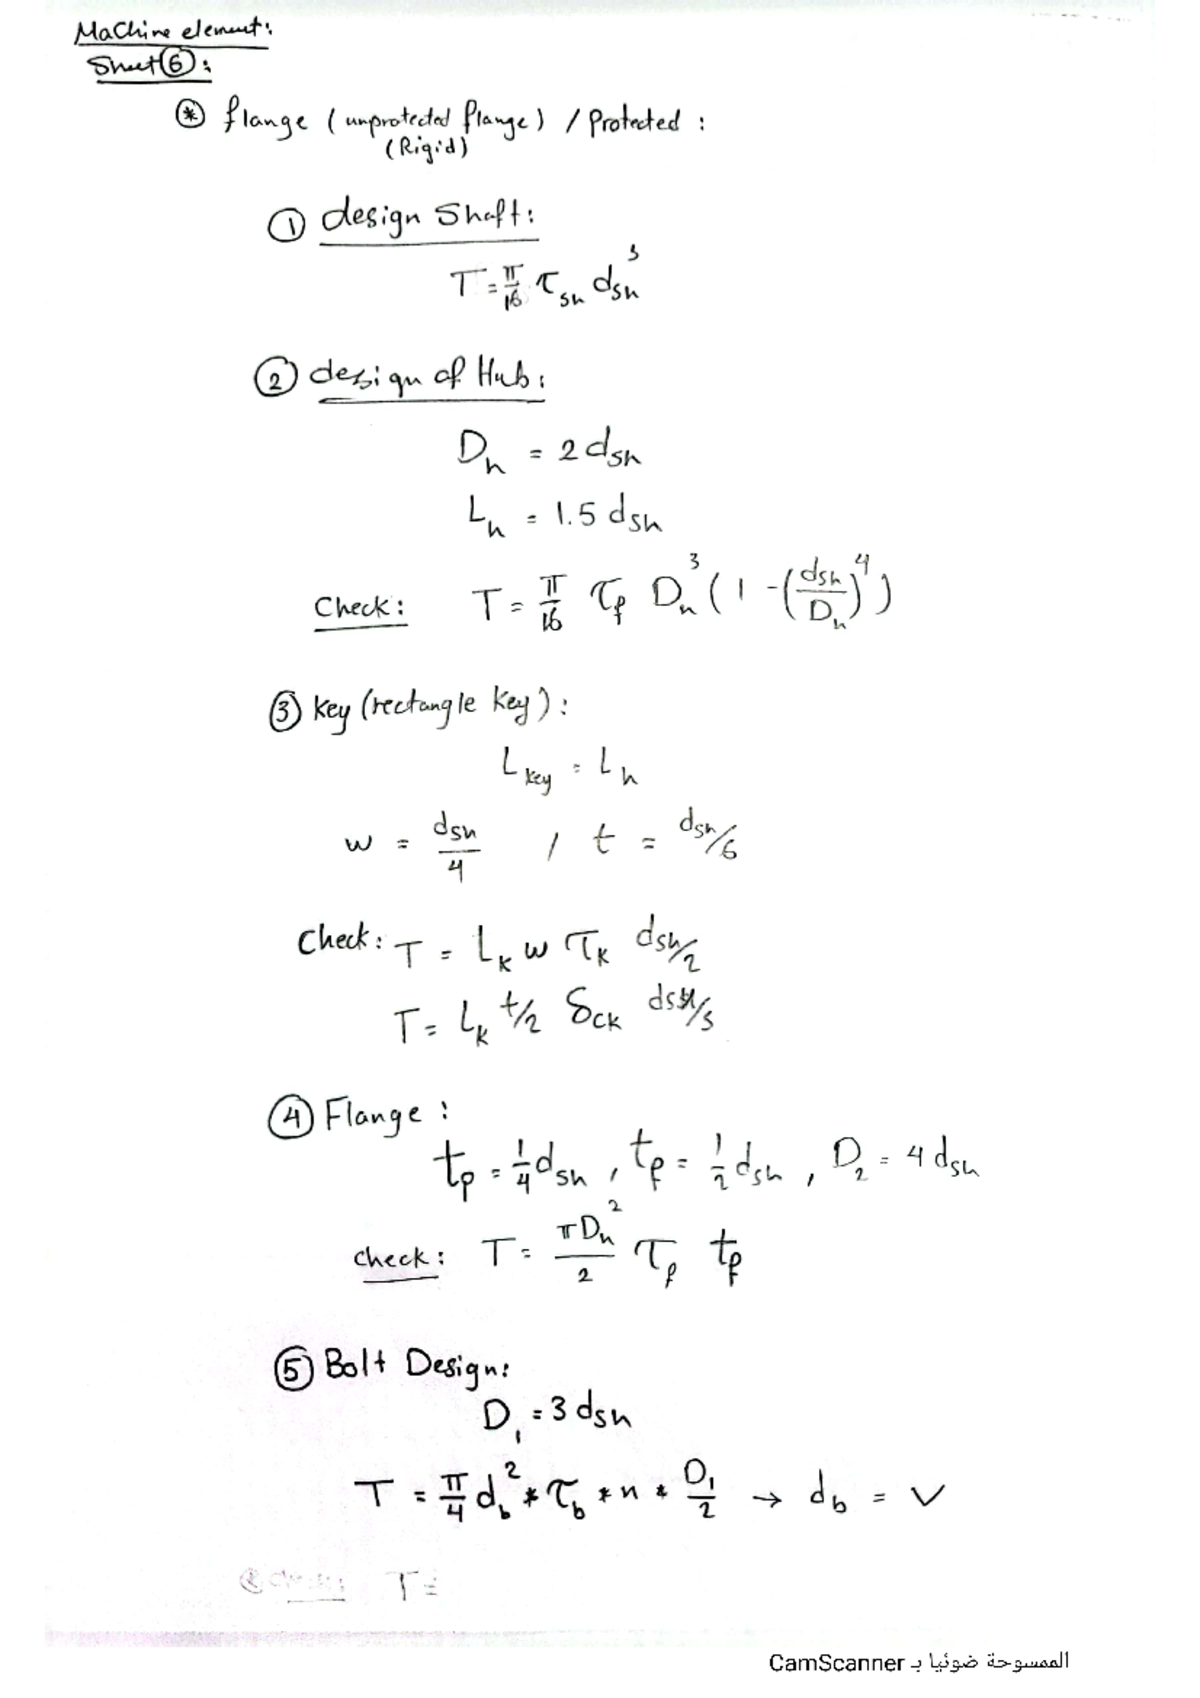 Machine element:
Sheet 6:
* flange (unprotected flange) / Protected :
(Rigid)
① design Shaft:
T = π/16 τsh dsh³
② design of Hub:
Dh = 2 dsh
Lh = 1.5 dsh
Check: T = π/16 τf Dh³ (1 - (dsh/Dh)⁴)
③ key (rectangle key):
Lkey = Lh
w = dsh/4 / t = dsh/6
Check: T = Lk w τk dsh/2
T = Lk t/2 δck
④ Flange :
tp = 1/4 dsh , tf = 1/2 dsh , D2 = 4 dsh
check: T = πDh²/2 τf tf
⑤ Bolt Design:
D1 = 3 dsh
T = π/4 db² * τb * n * D1/2 → db = √
T =
الممسوحة ضوئيا بـ CamScanner